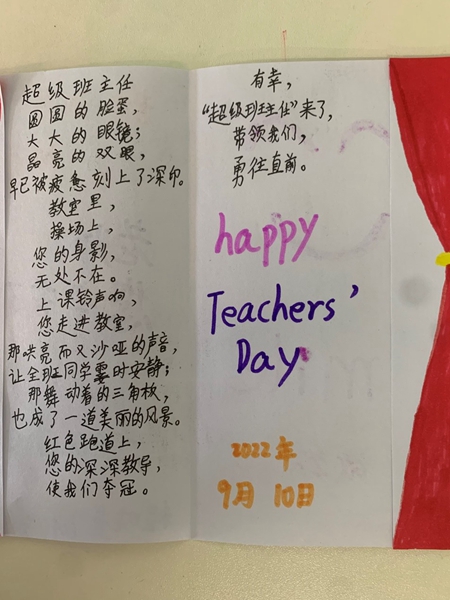 超级班主任
圆圆的脸蛋,
大大的眼镜;
晶亮的双眼,
早已被疲惫刻上了深印。
教室里,
操场上,
您的身影,
无处不在。
上课铃声响,
您走进教室,
那哄亮而又沙哑的声音,
让全班同学霎时安静;
那舞动着的三角板,
也成了一道美丽的风景。
红色跑道上,
您的深深教导,
使我们夺冠。
有幸,
“超级班主任”来了,
带领我们,
勇往直前。
happy
Teachers'
Day
2022年
9月 10日